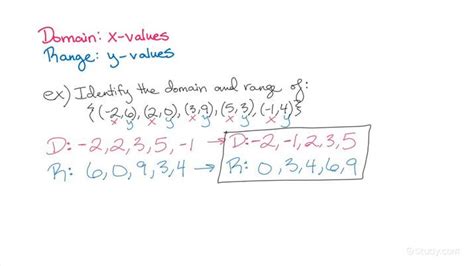 Domain: x-values
Range: y-values
ex) Identify the domain and range of:
{(-2,6), (2,0), (3,9), (5,3), (-1,4)}
x y x y x y x y x y
D: -2, 2, 3, 5, -1 → D: -2, -1, 2, 3, 5
R: 6, 0, 9, 3, 4 → R: 0, 3, 4, 6, 9
Study.com